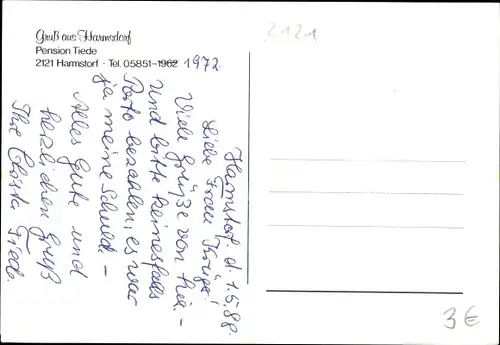 Gruß aus Harmsdorf
Pension Tiede
2121 Harmstorf - Tel. 05851-1962 1972
2121
Harmstorf. d. 1.5.88.
Liebe Frau Krüger!
Viele Grüße von hier. -
Und bitte keinesfalls
Porto bezahlen, es war
ja meine Schuld. -
Alles Gute und
herzlichen Gruß
Ihre Christa Tiede.
3€